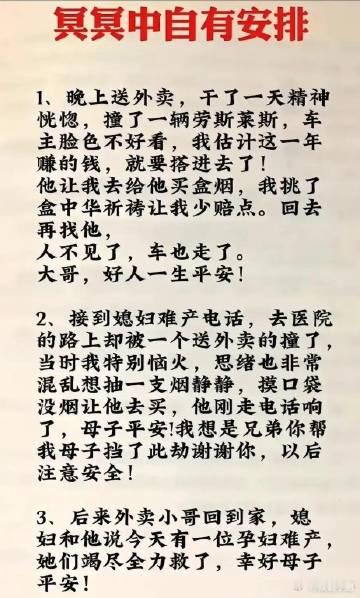 冥冥中自有安排
1、晚上送外卖，干了一天精神
恍惚，撞了一辆劳斯莱斯，车
主脸色不好看，我估计这一年
赚的钱，就要搭进去了！
他让我去给他买盒烟，我挑了
盒中华祈祷让我少赔点。回去
再找他，
人不见了，车也走了。
大哥，好人一生平安！
2、接到媳妇难产电话，去医院
的路上却被一个送外卖的撞了，
当时我特别恼火，思绪也非常
混乱想抽一支烟静静，摸口袋
没烟让他去买，他刚走电话响
了，母子平安!我想是兄弟你帮
我母子挡了此劫谢谢你，以后
注意安全！
3、后来外卖小哥回到家，媳
妇和他说今天有一位孕妇难产，
她们竭尽全力救了，幸好母子
平安！